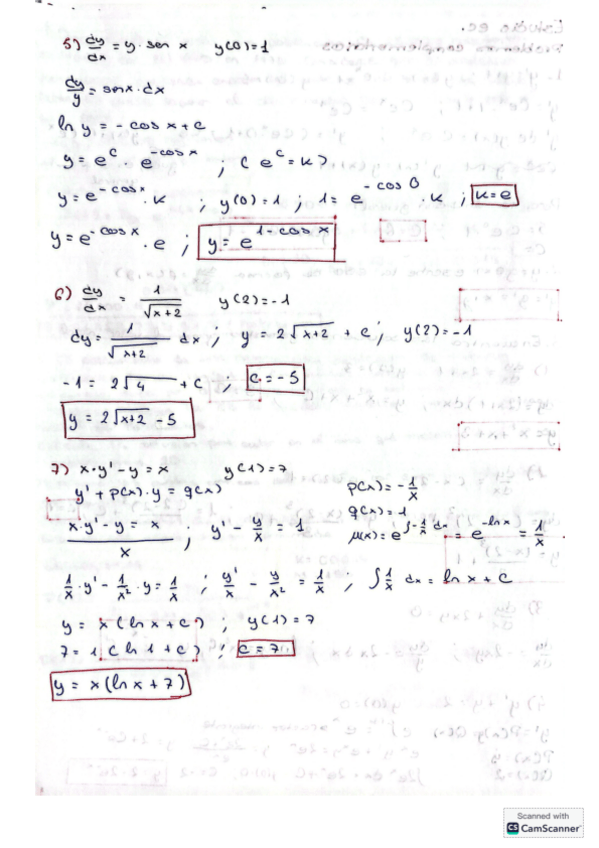 5) dy/dx = y · sen x   y(0)=1
dy/y = senx · dx
ln y = -cos x + c
y = e^c e^-cosx ; ( e^c = k )
y = e^-cosx · k ; y(0)=1 ; 1 = e^-cos 0 · k ; k=e
y = e^-cosx · e ; y = e^1-cosx
6) dy/dx = 1/√x+2   y(2)=-1
dy = 1/√x+2 dx ; y = 2√x+2 + c ; y(2)=-1
-1 = 2√4 + c ; c = -5
y = 2√x+2 - 5
7) x·y' - y = x   y(1)=7
y' + p(x) · y = q(x)   p(x) = -1/x
q(x) = 1
x·y' - y = x / x , y' - y/x = 1   μ(x) = e^∫-1/x dx = e^-lnx = 1/x .
1/x · y' - 1/x² · y = 1/x ; y'/x - y/x² = 1/x , ∫ 1/x dx = ln x + C
y = x (ln x + c) ; y(1) = 7
7 = 1 ( ln 1 + c ) ; c = 7
y = x (ln x + 7)
Scanned with
CS CamScanner